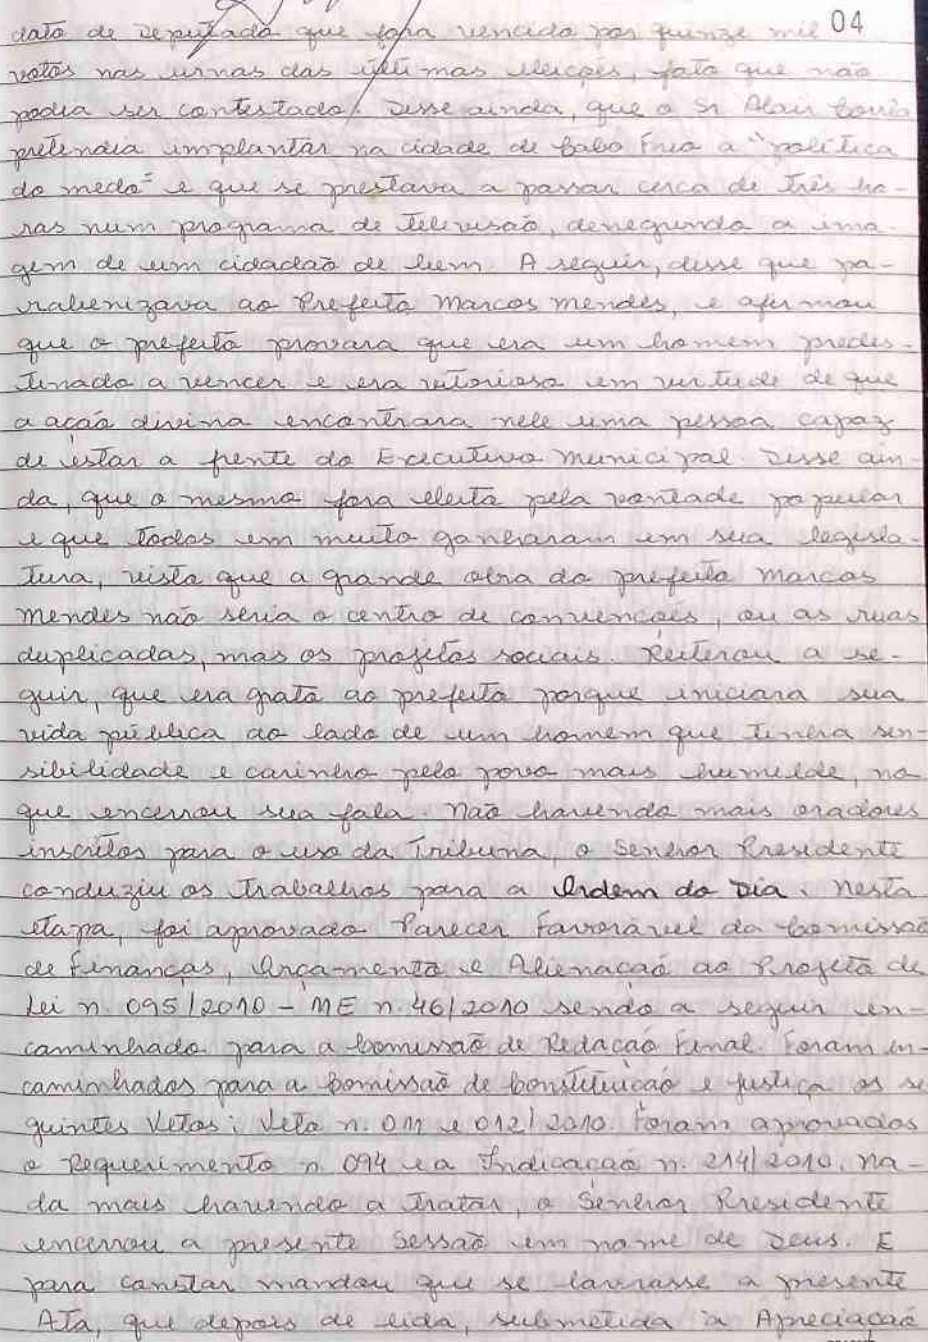 04
dato de Deputado que fora vencido por quinze mil
votos nas urnas das últimas eleições, fato que não
podia ser contestado. Disse ainda, que o Sr Alair Corrêa
pretendia implantar na cidade de Cabo Frio a "política
do medo" e que se prestava a passar cerca de três ho-
ras num programa de televisão, denegrindo a ima-
gem de um cidadão de bem. A seguir, disse que pa-
rabenizava ao Prefeito Marcos Mendes, e afirmou
que o prefeito provara que era um homem predes-
tinado a vencer e era vitorioso em virtude de que
a ação divina encontrara nele uma pessoa capaz
de estar a frente do Executivo Municipal. Disse ain-
da, que o mesmo fora eleito pela vontade popular
e que todos em muito ganharam em sua legisla-
tura, visto que a grande obra do prefeito Marcos
Mendes não seria o centro de convenções, ou as ruas
duplicadas, mas os projetos sociais. Reiterou a se-
guir, que era grata ao prefeito porque iniciara sua
vida pública ao lado de um homem que tinha sen-
sibilidade e carinho pelo povo mais humilde, no
que encerrou sua fala. Não havendo mais oradores
inscritos para o uso da Tribuna, o Senhor Presidente
conduziu os trabalhos para a Ordem do Dia. Nesta
etapa, foi aprovado Parecer Favorável da Comissão
de Finanças, Orçamento e Alienação ao Projeto de
Lei n. 095/2010 - ME n. 46/2010 sendo a seguir en-
caminhado para a Comissão de Redação Final. Foram en-
caminhados para a Comissão de Constituição e Justiça os se
guintes Vetos: Veto n. 011 e 012/2010. Foram aprovados
o Requerimento n. 094 e a Indicação n. 214/2010. Na-
da mais havendo a tratar, o Senhor Presidente
encerrou a presente Sessão em nome de Deus. E
para constar mandou que se lavrasse a presente
Ata, que depois de lida, submetida à Apreciação